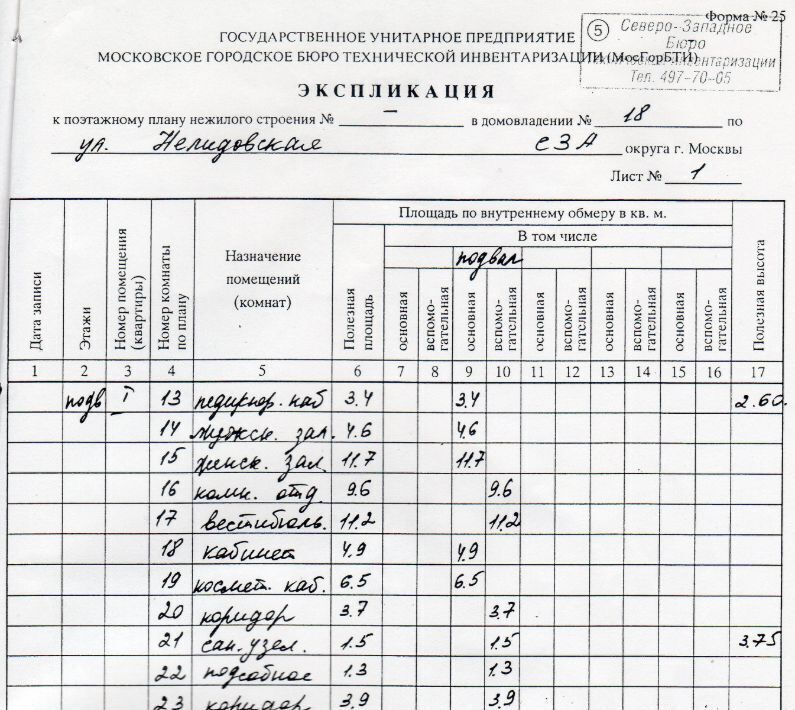 Форма № 25
5 Северо-Западное
Бюро
технической инвентаризации
Тел. 497-70-05
ГОСУДАРСТВЕННОЕ УНИТАРНОЕ ПРЕДПРИЯТИЕ
МОСКОВСКОЕ ГОРОДСКОЕ БЮРО ТЕХНИЧЕСКОЙ ИНВЕНТАРИЗАЦИИ (МосГорБТИ)
ЭКСПЛИКАЦИЯ
к поэтажному плану нежилого строения № — в домовладении № 18 по
ул. Нелидовская СЗА округа г. Москвы
Лист № 1
Дата записи
Этажи
Номер помещения
(квартиры)
Номер комнаты
по плану
Назначение
помещений
(комнат)
Площадь по внутреннему обмеру в кв. м.
Полезная
площадь
В том числе
подвал
основная
вспомо-
гательная
основная
вспомо-
гательная
основная
вспомо-
гательная
основная
вспомо-
гательная
основная
вспомо-
гательная
Полезная высота
1 2 3 4 5 6 7 8 9 10 11 12 13 14 15 16 17
подв I 13 педикюр. каб 3.4 3.4 2.60.
14 мужск. зал. 4.6 4.6
15 женск. зал. 11.7 11.7
16 комн. отд. 9.6 9.6
17 вестибюль. 11.2 11.2
18 кабинет 4.9 4.9
19 космет. каб. 6.5 6.5
20 коридор 3.7 3.7
21 сан. узел. 1.5 1.5 3.75
22 подсобное 1.3 1.3
23 коридор 3.9 3.9